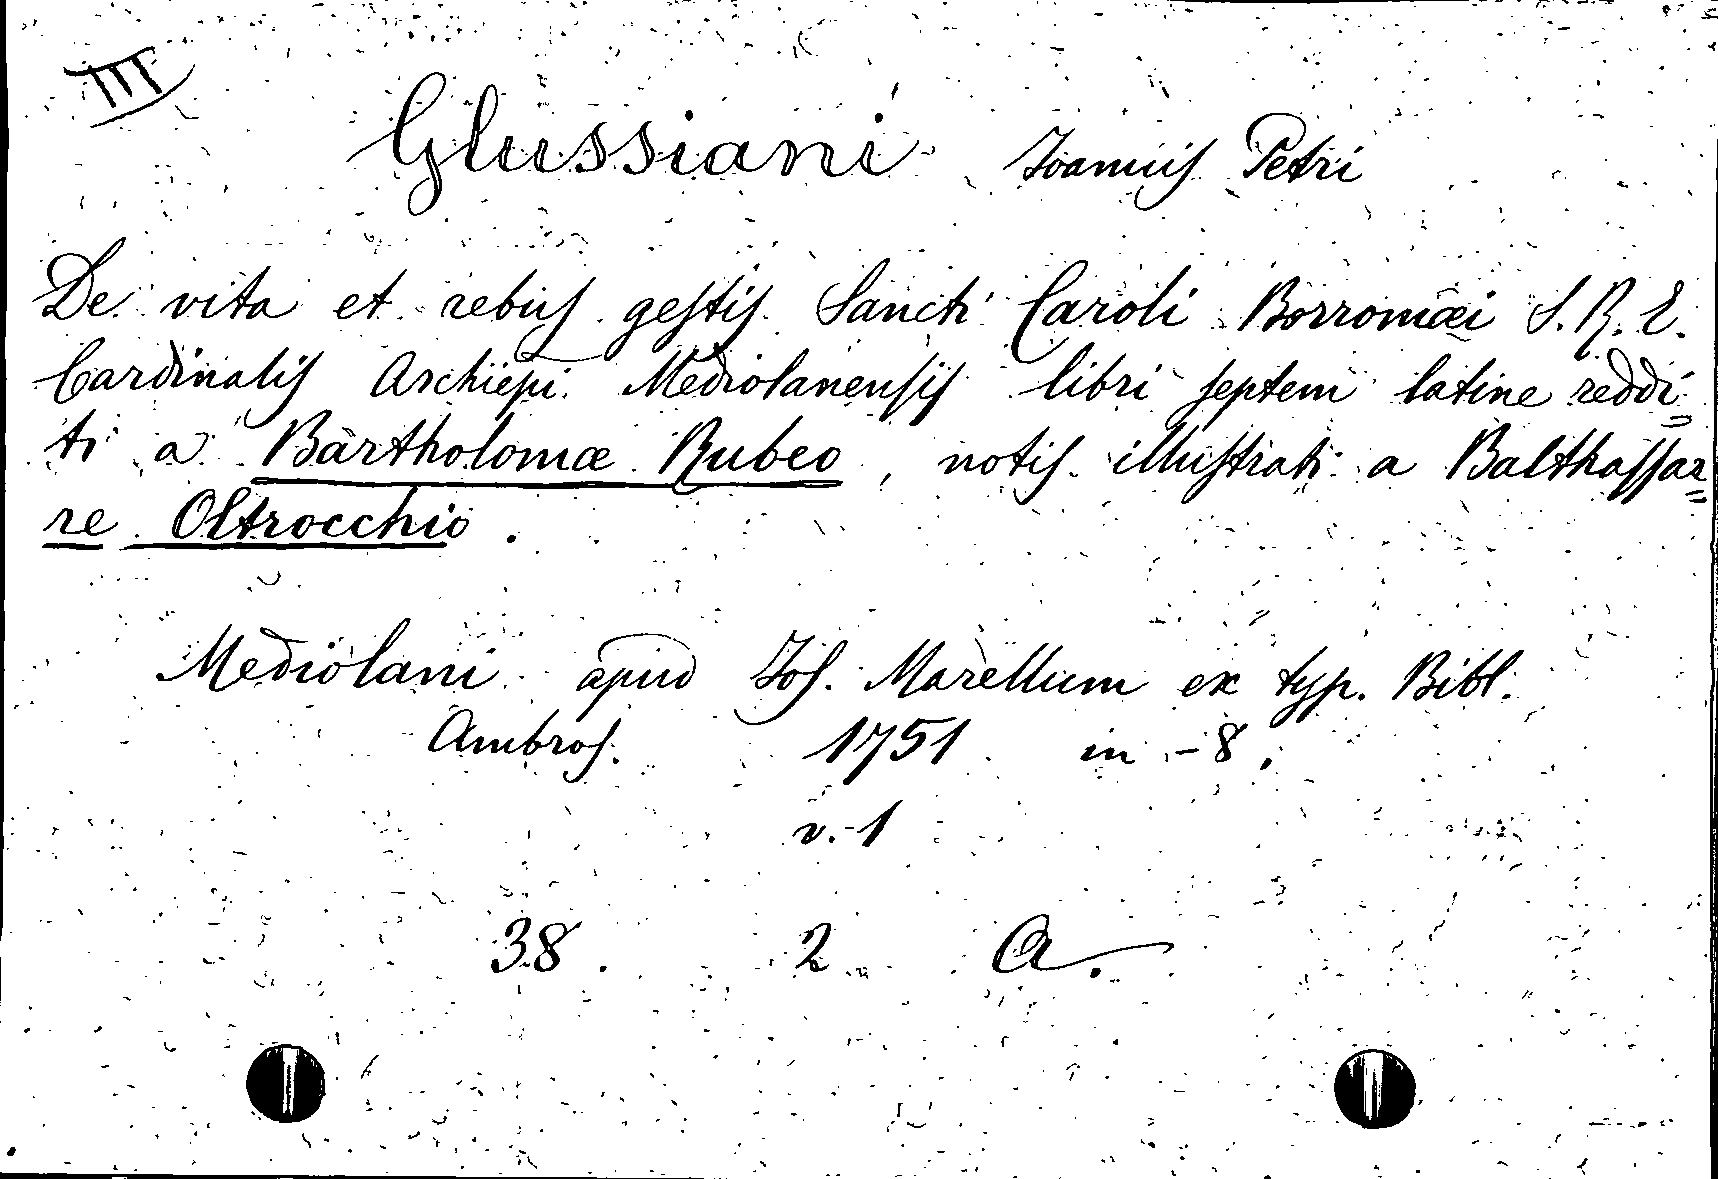 III
Glussiani Joannis Petri
De vita et rebus gestis Sancti Caroli Borromæi S. R. E.
Cardinalis Archiepi. Mediolanensis libri septem latine reddi=
ti a Bartholomæ Rubeo, notis illustrati a Balthassar=
re Oltrocchio.
Mediolani apud Jos. Marellum ex typ. Bibl.
Ambros. 1751 in-8.
v. 1
38. 2 A.